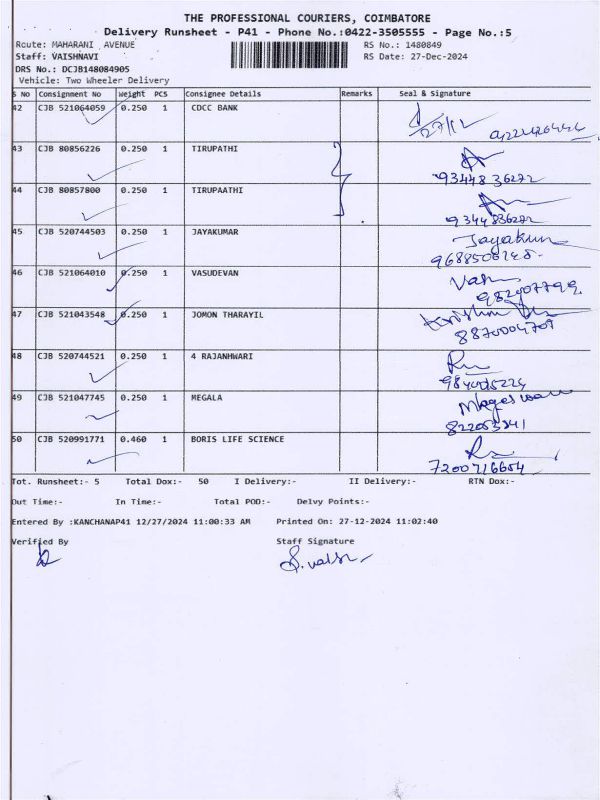 THE PROFESSIONAL COURIERS, COIMBATORE
Delivery Runsheet - P41 - Phone No.:0422-3505555 - Page No.:5
Route: MAHARANI AVENUE RS No.: 1480849
Staff: VAISHNAVI RS Date: 27-Dec-2024
DRS No.: DCJB148084905
Vehicle: Two Wheeler Delivery
S No Consignment No Weight PCS Consignee Details Remarks Seal & Signature
42 CJB 521064059 0.250 1 CDCC BANK
27/12
43 CJB 80856226 0.250 1 TIRUPATHI
9344836272
44 CJB 80857800 0.250 1 TIRUPAATHI
9344836272
45 CJB 520744503 0.250 1 JAYAKUMAR
Jayakum
46 CJB 521064010 0.250 1 VASUDEVAN
47 CJB 521043548 0.250 1 JOMON THARAYIL
8870004709
48 CJB 520744521 0.250 1 4 RAJANHWARI
49 CJB 521047745 0.250 1 MEGALA
50 CJB 520991771 0.460 1 BORIS LIFE SCIENCE
7200716654
Tot. Runsheet:- 5 Total Dox:- 50 I Delivery:- II Delivery:- RTN Dox:-
Out Time:- In Time:- Total POD:- Delvy Points:-
Entered By :KANCHANAP41 12/27/2024 11:00:33 AM Printed On: 27-12-2024 11:02:40
Verified By Staff Signature